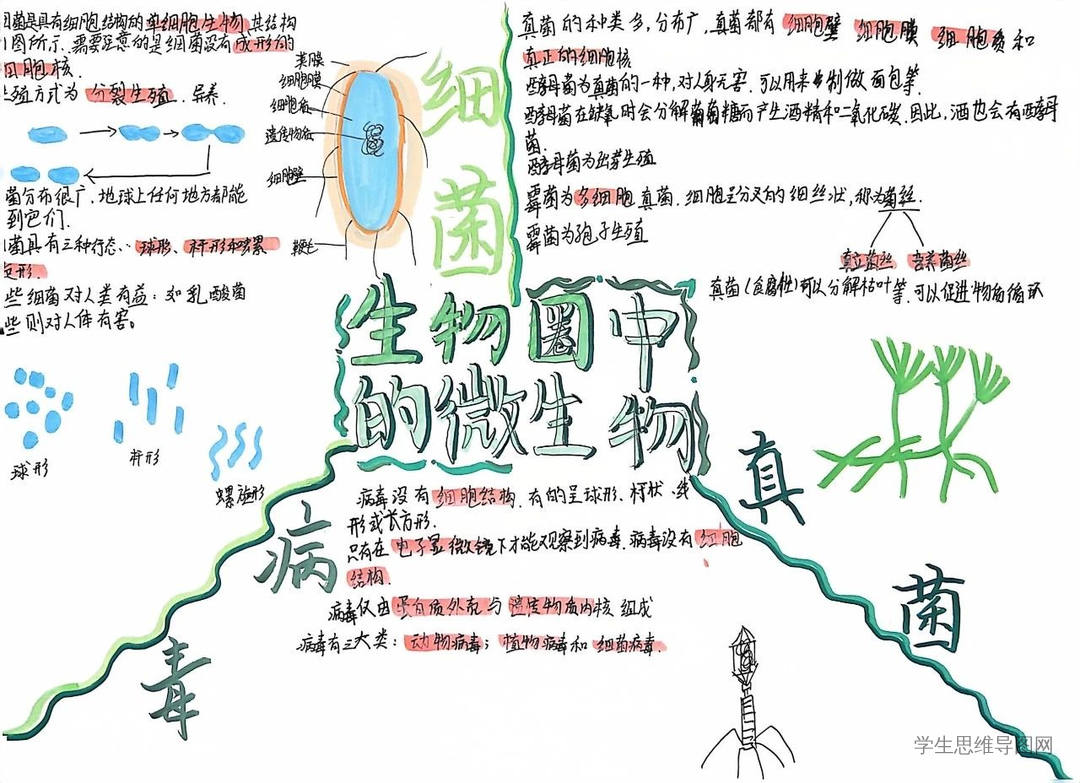 菌是具有细胞结构的单细胞生物,其结构
图所示,需要注意的是细菌没有成形的
细胞核.
殖方式为 分裂生殖. 异养.
菌分布很广,地球上任何地方都能
到它们.
菌具有三种形态:球形、杆形和螺
旋形.
些细菌对人类有益:如乳酸菌
些则对人体有害。
球形
杆形
螺旋形
荚膜
细胞膜
细胞质
遗传物质
细胞壁
鞭毛
细
菌
真菌的种类多,分布广,真菌都有 细胞壁 细胞膜 细胞质和
真正的细胞核
酵母菌为真菌的一种,对人身无害,可以用来制做面包等.
酵母菌在缺氧时会分解葡萄糖而产生酒精和二氧化碳.因此,酒也会有酵母
菌.
酵母菌为出芽生殖
霉菌为多细胞真菌.细胞呈分叉的细丝状,称为菌丝.
霉菌为孢子生殖
直立菌丝 营养菌丝
真菌(食腐性)可以分解枯叶等,可以促进物质循环
生物圈中
的微生物
真
菌
病
毒
病毒没有细胞结构.有的呈球形、杆状、丝
形或长方形.
只有在电子显微镜下才能观察到病毒.病毒没有细胞
结构.
病毒仅由蛋白质外壳与遗传物质内核组成
病毒有三大类:动物病毒;植物病毒和细菌病毒.
学生思维导图网